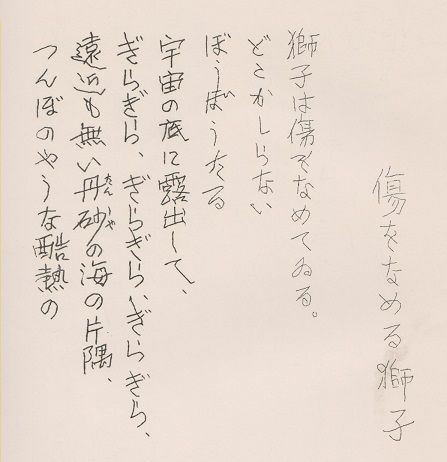 傷をなめる獅子
獅子は傷をなめてゐる。
どこかしらない
ぼうぼうたる
宇宙の底に露出して、
ぎらぎら、ぎらぎら、ぎらぎら、
遠近も無い丹砂の海の片隅、
つんぼのやうな酷熱の